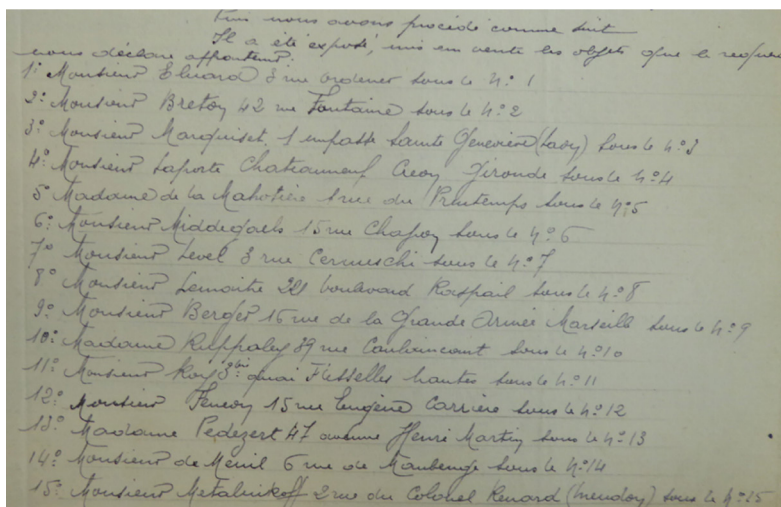 Puis nous avons procédé comme suit
Il a été exposé, mis en vente les objets que le requé
nous déclare appartenir:
1º Monsieur Eluard 3 rue Ordener sous le nº 1
2º Monsieur Breton 42 rue Fontaine sous le nº 2
3º Monsieur Marquiset, 1 impasse Sainte Geneviève sous le nº 3
4º Monsieur Laporte Chateauneuf Creon Gironde sous le nº 4
5º Madame de la Mahotière 1 rue du Printemps sous le nº 5
6º Monsieur Middegaels 15 rue sous le nº 6
7º Monsieur Level 3 rue Cernuschi sous le nº 7
8º Monsieur Lemaitre boulevard Raspail sous le nº 8
9º Monsieur Berger 16 rue de la Grande Armée Marseille sous le nº 9
10º Madame 89 rue Caulaincourt sous le nº 10
11º Monsieur Roy 3bis quai Flesselles Nantes sous le nº 11
12º Monsieur Feneon 15 rue Eugène Carrière sous le nº 12
13º Madame Pedezert 47 avenue Henri Martin sous le nº 13
14º Monsieur de Menil 6 rue de Maubeuge sous le nº 14
15º Monsieur Metalnikoff 2 rue du Colonel Renard (Meudon) sous le nº 15